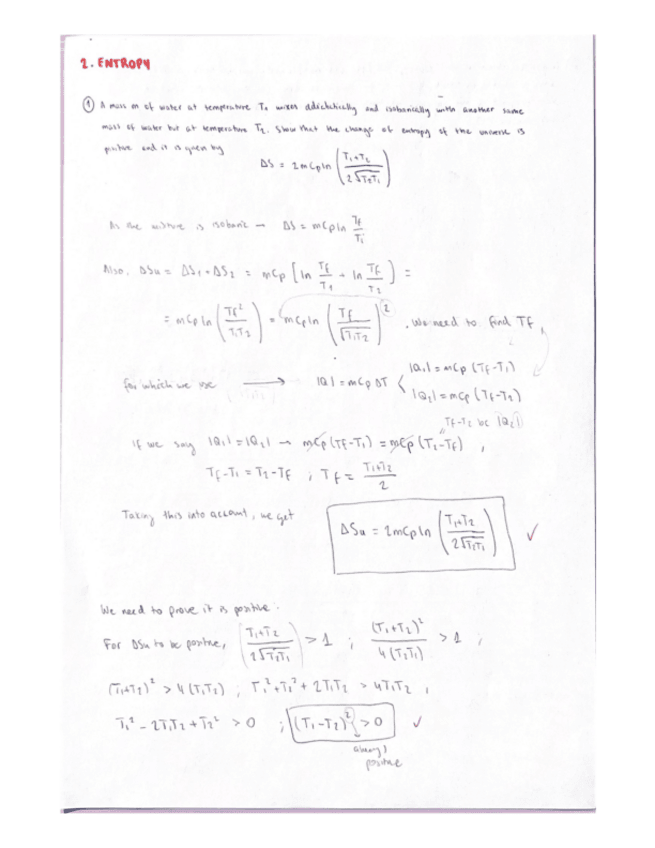 2. ENTROPY
① A mass m of water at temperature T₁ mixes adiabatically and isobarically with another same
mass of water but at temperature T₂. Show that the change of entropy of the universe is
positive and it is given by
ΔS = 2mCp ln (T₁+T₂ / 2√T₂T₁)
As the mixture is isobaric → ΔS = mCp ln Tf/Ti
Also, ΔSu = ΔS₁+ΔS₂ = mCp [ln Tf/T₁ + ln Tf/T₂] =
= mCp ln (Tf²/T₁T₂) = mCp ln (Tf/√T₁T₂)². We need to find Tf,
for which we use → |Q| = mCpΔT < |Q₁| = mCp (Tf-T₁)
|Q₂| = mCp (Tf-T₂)
Tf-T₂ bc |Q₂|
If we say |Q₁| = |Q₂| → mCp (Tf-T₁) = mCp (T₂-Tf),
Tf-T₁ = T₂-Tf ; Tf = T₁+T₂ / 2
Taking this into account, we get
ΔSu = 2mCp ln (T₁+T₂ / 2√T₂T₁) ✓
We need to prove it is positive.
For ΔSu to be positive, (T₁+T₂ / 2√T₂T₁) > 1 ; (T₁+T₂)² / 4(T₂T₁) > 1 ;
(T₁+T₂)² > 4(T₁T₂) ; T₁²+T₂²+2T₁T₂ > 4T₁T₂ ,
T₁² - 2T₁T₂ + T₂² > 0 ; (T₁-T₂)² > 0 ✓
always
positive